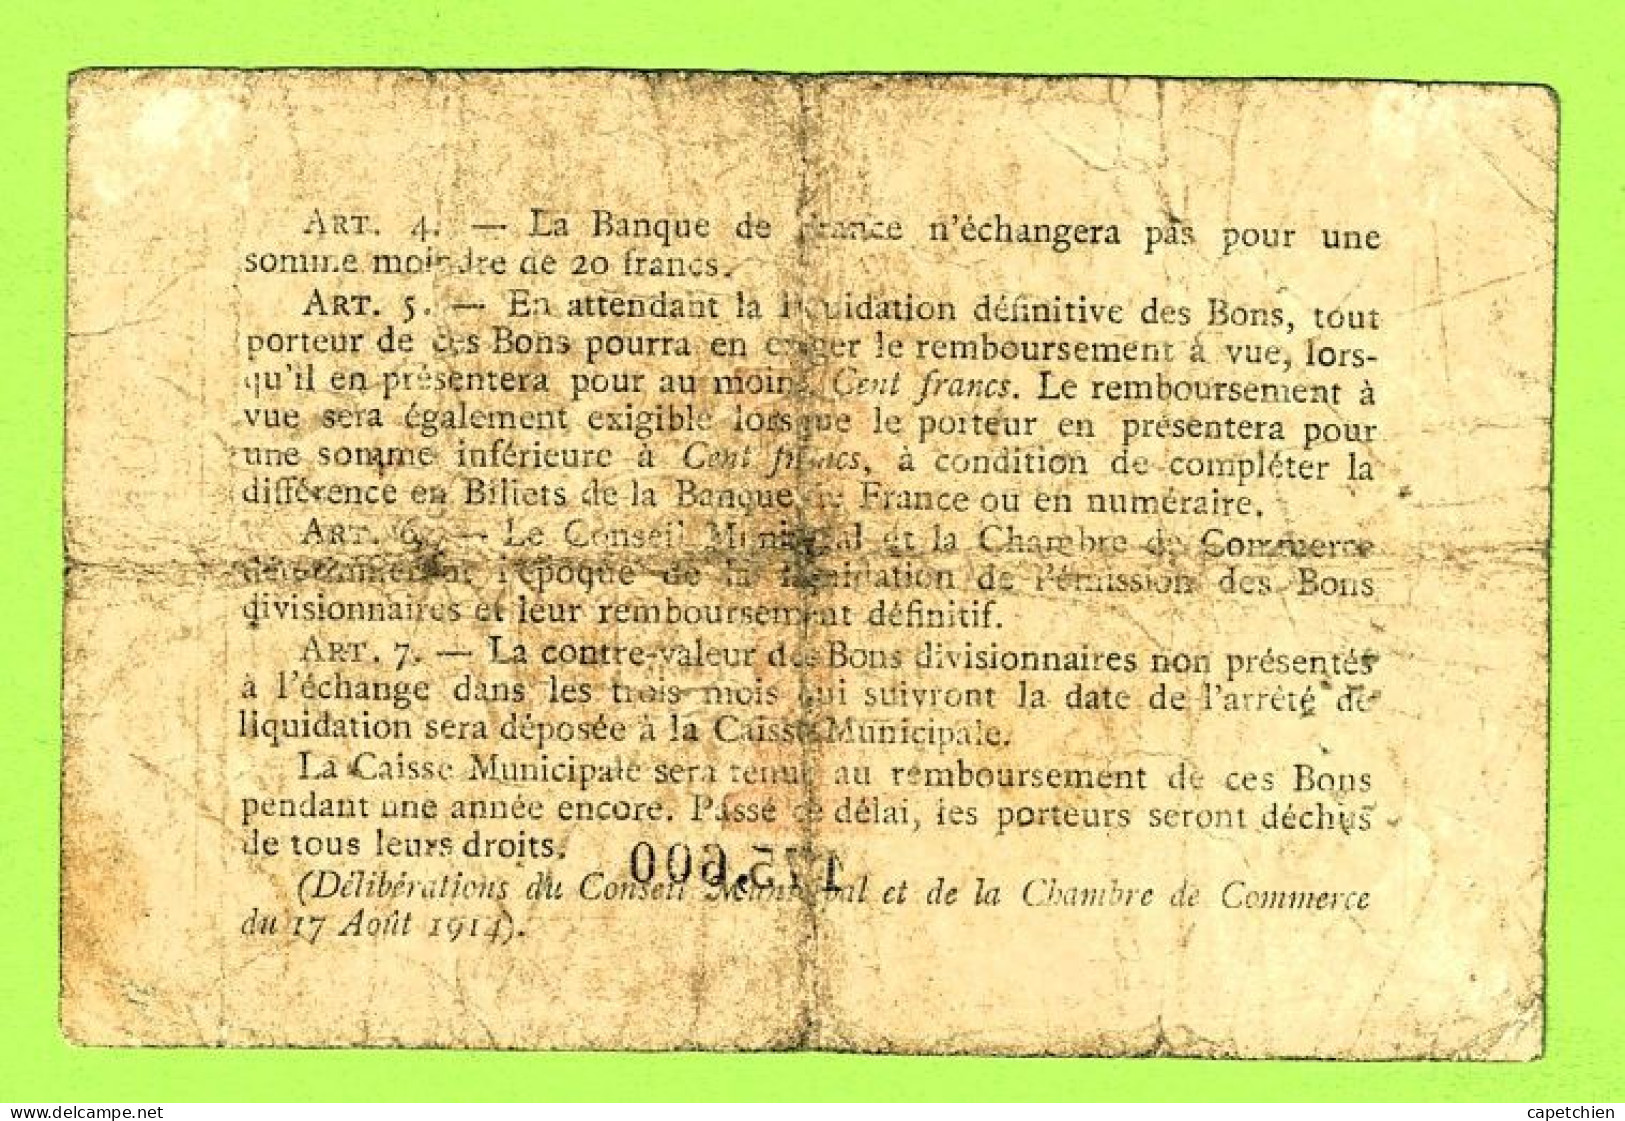 ART. 4. — La Banque de France n'échangera pas pour une
somme moindre de 20 francs.
ART. 5. — En attendant la liquidation définitive des Bons, tout
porteur de ces Bons pourra en exiger le remboursement à vue, lors-
qu'il en présentera pour au moins Cent francs. Le remboursement à
vue sera également exigible lorsque le porteur en présentera pour
une somme inférieure à Cent francs, à condition de compléter la
différence en Billets de la Banque de France ou en numéraire.
ART. 6. — Le Conseil Municipal et la Chambre de Commerce
détermineront l'époque de la liquidation de l'émission des Bons
divisionnaires et leur remboursement définitif.
ART. 7. — La contre-valeur des Bons divisionnaires non présentés
à l'échange dans les trois mois qui suivront la date de l'arrêté de
liquidation sera déposée à la Caisse Municipale.
La Caisse Municipale sera tenue au remboursement de ces Bons
pendant une année encore. Passé ce délai, les porteurs seront déchus
de tous leurs droits.
175,600
(Délibérations du Conseil Municipal et de la Chambre de Commerce
du 17 Août 1914).
delcampe.net
capetchien